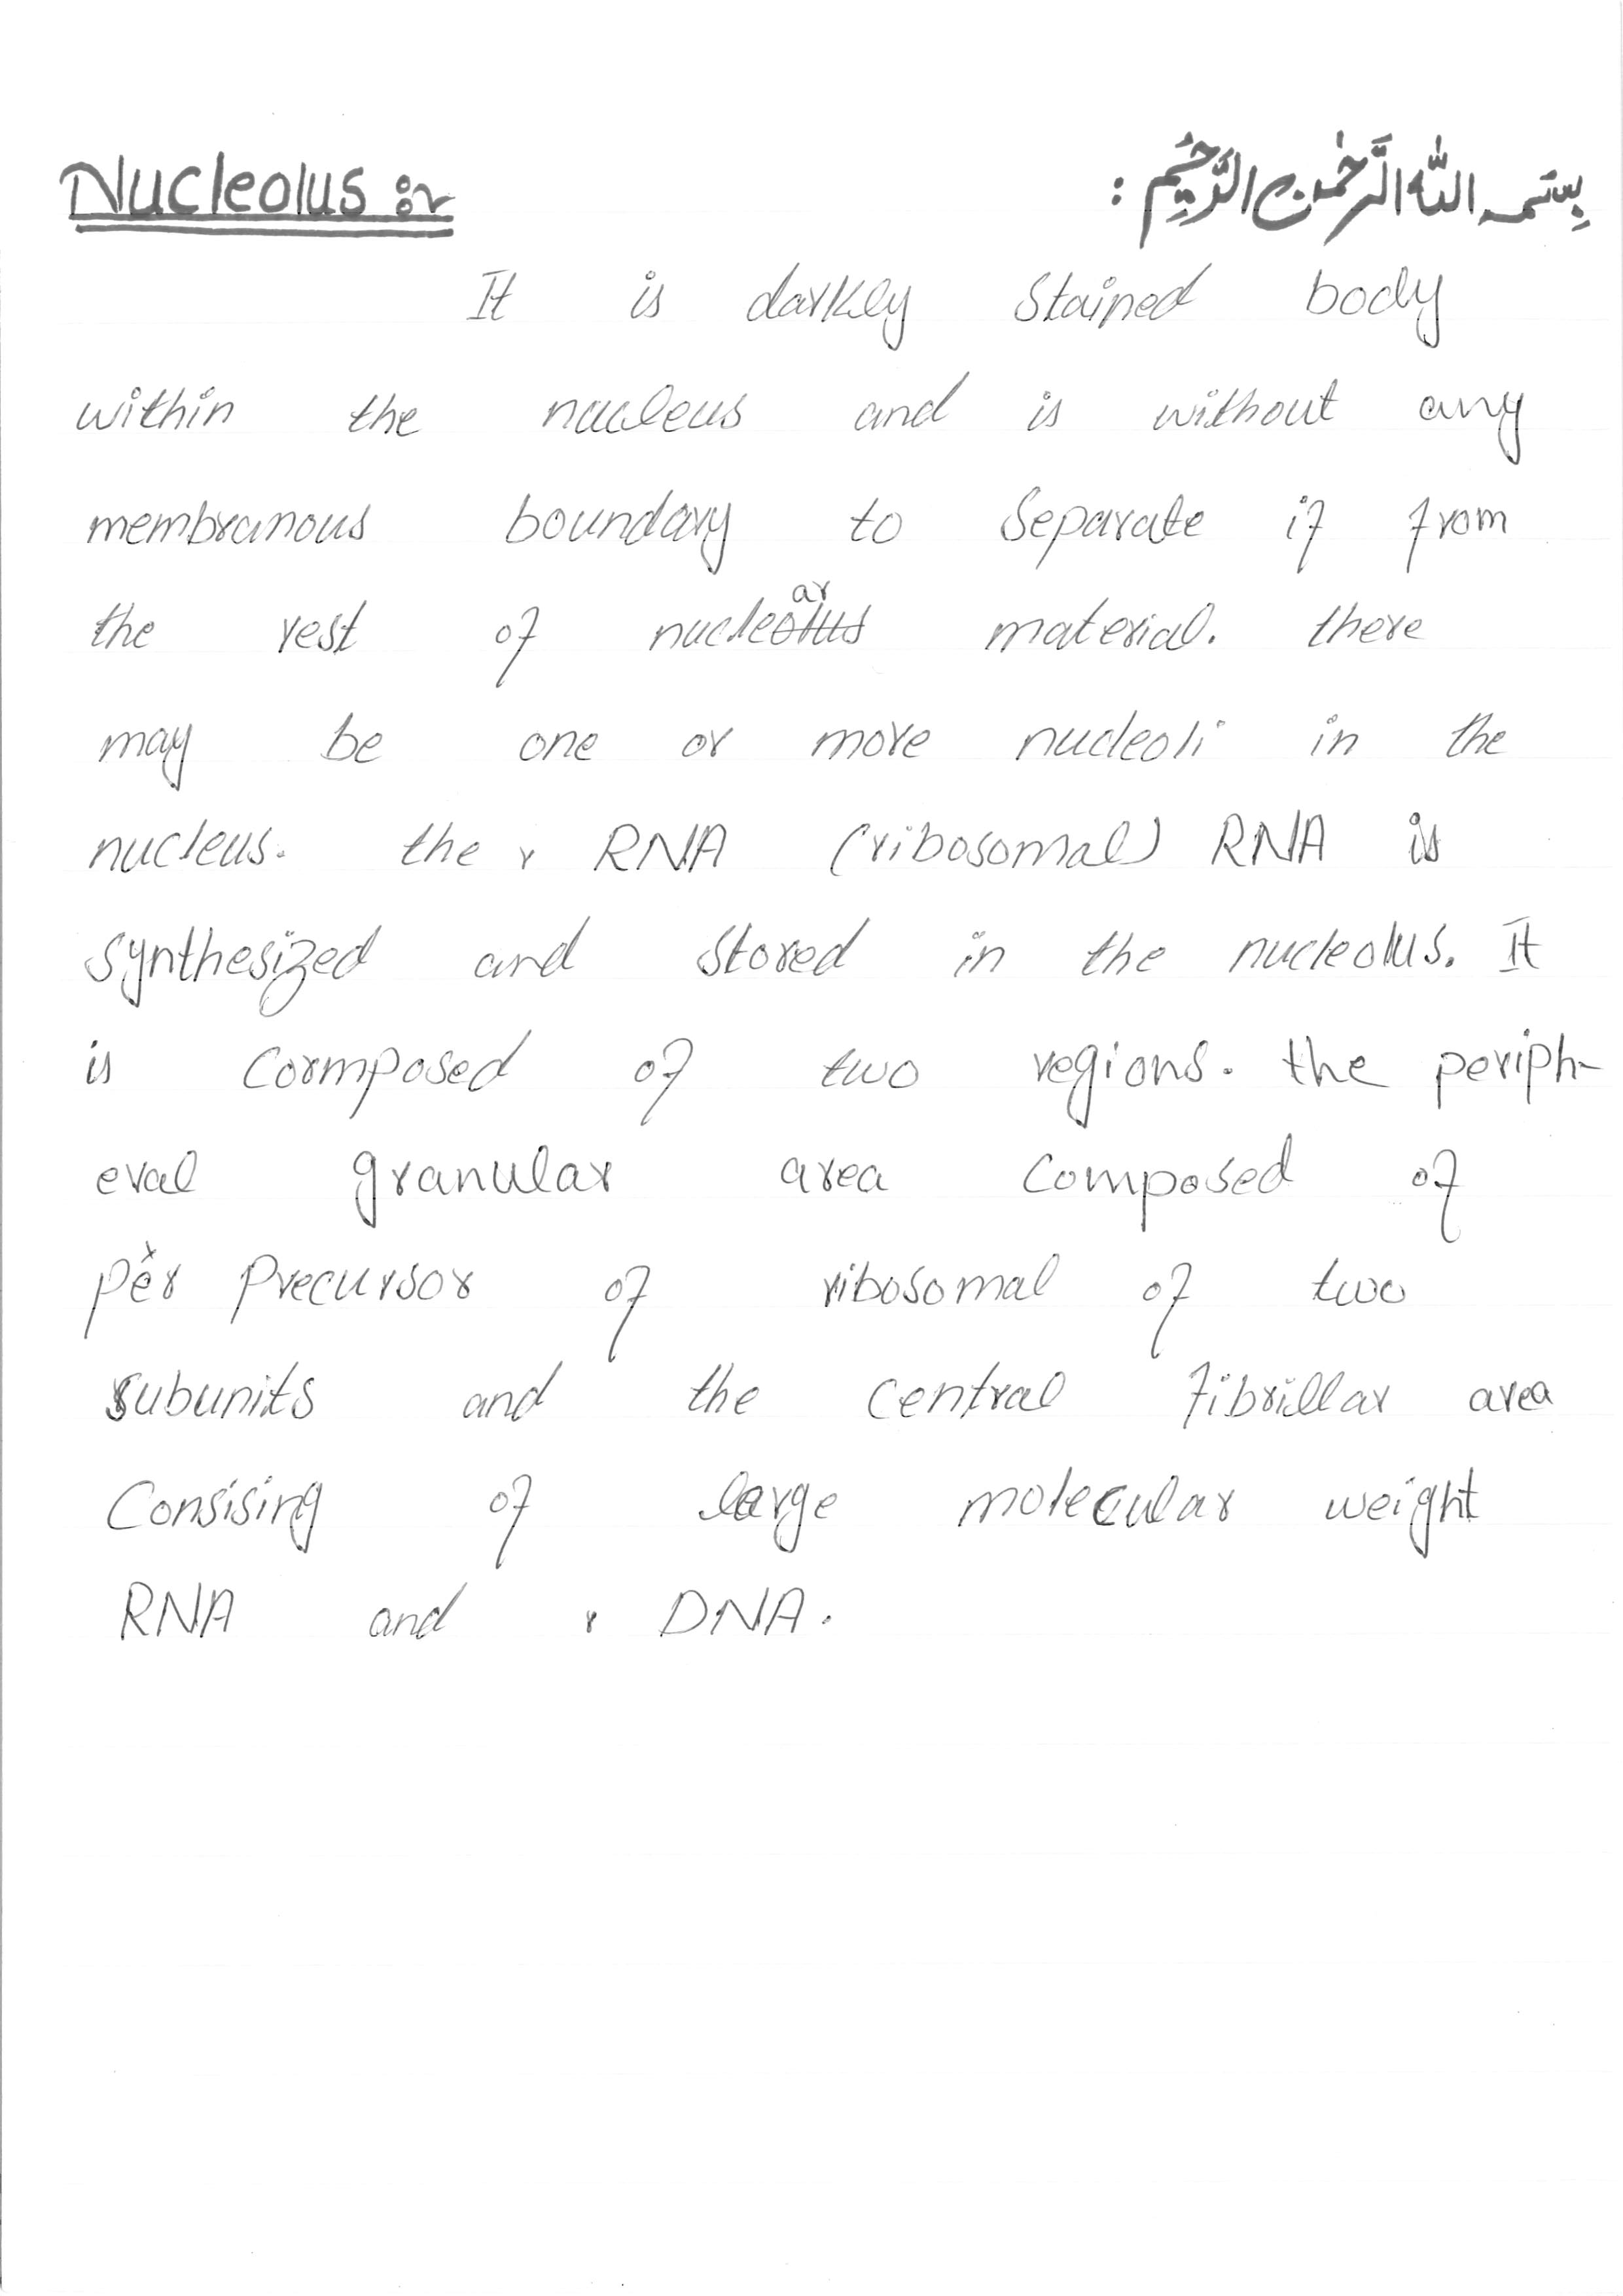 Nucleolus :~ بِسْمِ اللّٰهِ الرَّحْمٰنِ الرَّحِيْمِ :
It is darkly stained body
within the nucleus and is without any
membranous boundary to separate if from
the rest of nuclear material. there
may be one or more nucleoli in the
nucleus. the r RNA (ribosomal) RNA is
synthesized and stored in the nucleolus. It
is cormposed of two regions. the periph-
eral granular area composed of
per Precursor of ribosomal of two
subunits and the central fibrillar area
Consising of large molecular weight
RNA and r DNA.